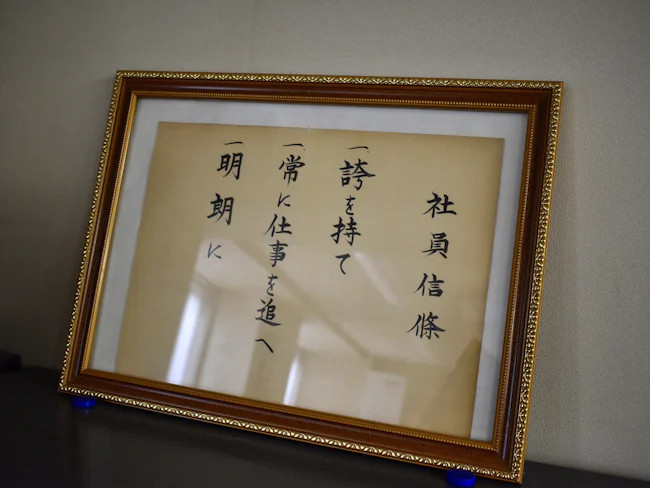 社員信條
一誇を持て
一常に仕事を追へ
一明朗に